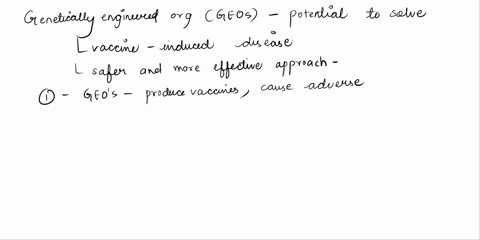 Genetically engineered org (GEOs) - potential to solve
vaccine - induced disease
safer and more effective approach -
① - GEO's - produce vaccines, cause adverse